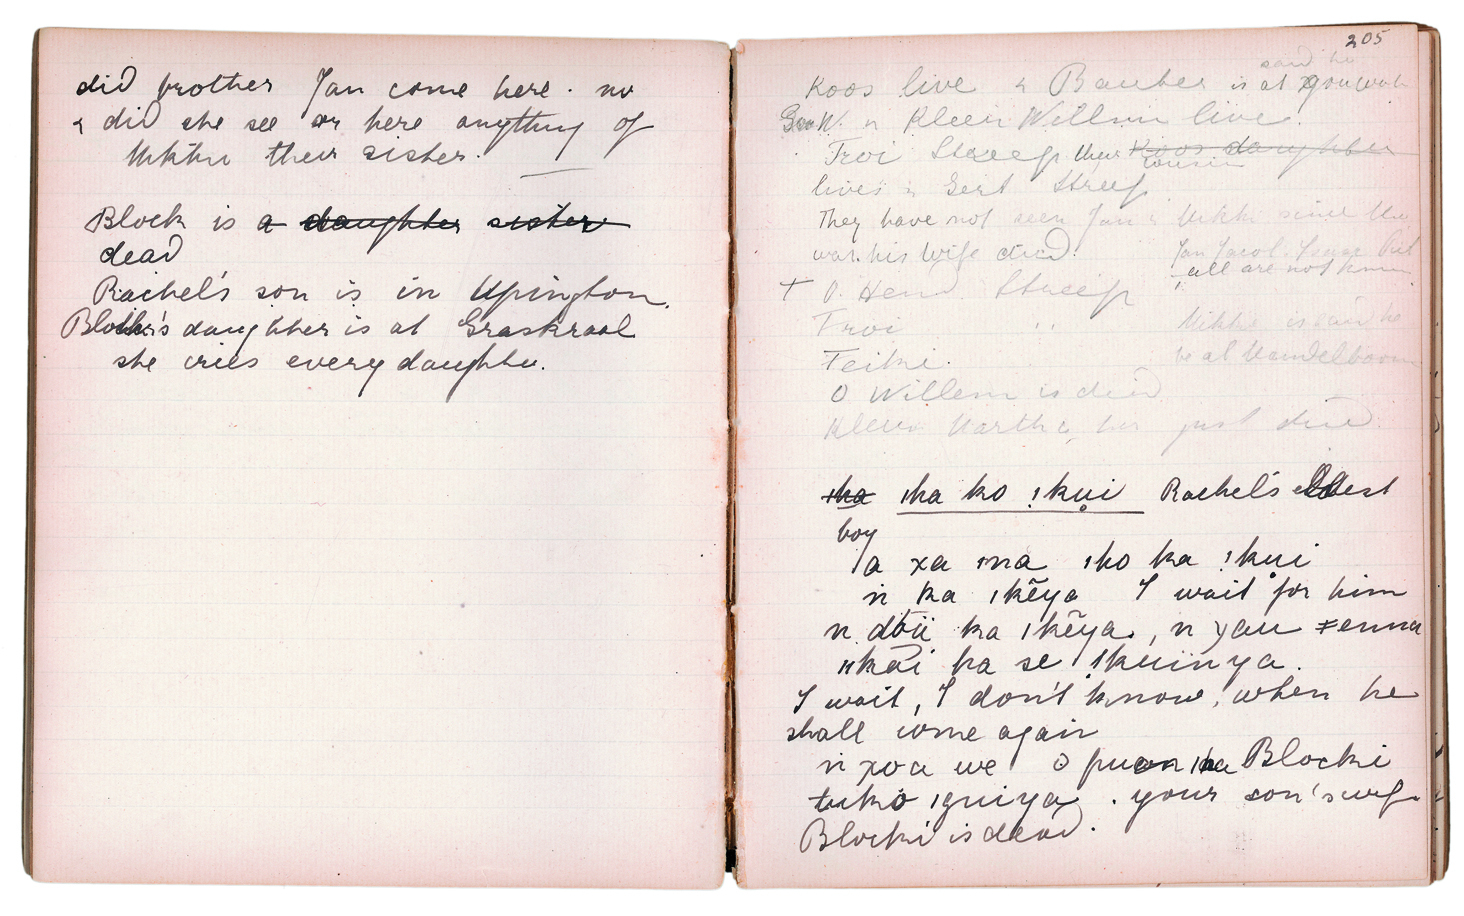 did brother Jan come here. no
& did she see or here anything of
Mikki their sister.
Block is a daughter sister
dead
Rachel's son is in Upington.
Blocki's daughter is at Graskraal
she cries every daughter.
205
said he
Koos live & Bamber is at
Gou W. & Klein Willem live.
Troi Streep their Koos daughter
cousin
lives & Gert Streep
They have not seen Jan & Mikki since the
war. his wife died.
Jan Jacob Isaac Piet
all are not known
+ O. Hend Streep "
Troi " Mikki is said he
Feiki. be at Mandelboom
O Willem is died
Klein Martha has just died
ǀha ǀha ko ǃkụi Rachel's eldest
boy
a xa ǀna ǀho ka ǃkui
n ka ǀkẽya I wait for him
n dóü ka ǀkẽya, n yau ǂenna
ǁkāi ka se ǀkuinya.
I wait, I don't know, when he
shall come again
n xoa we o puon ǀha Blocki
tukō ǀguiya. your son's wife
Blocki is dead.